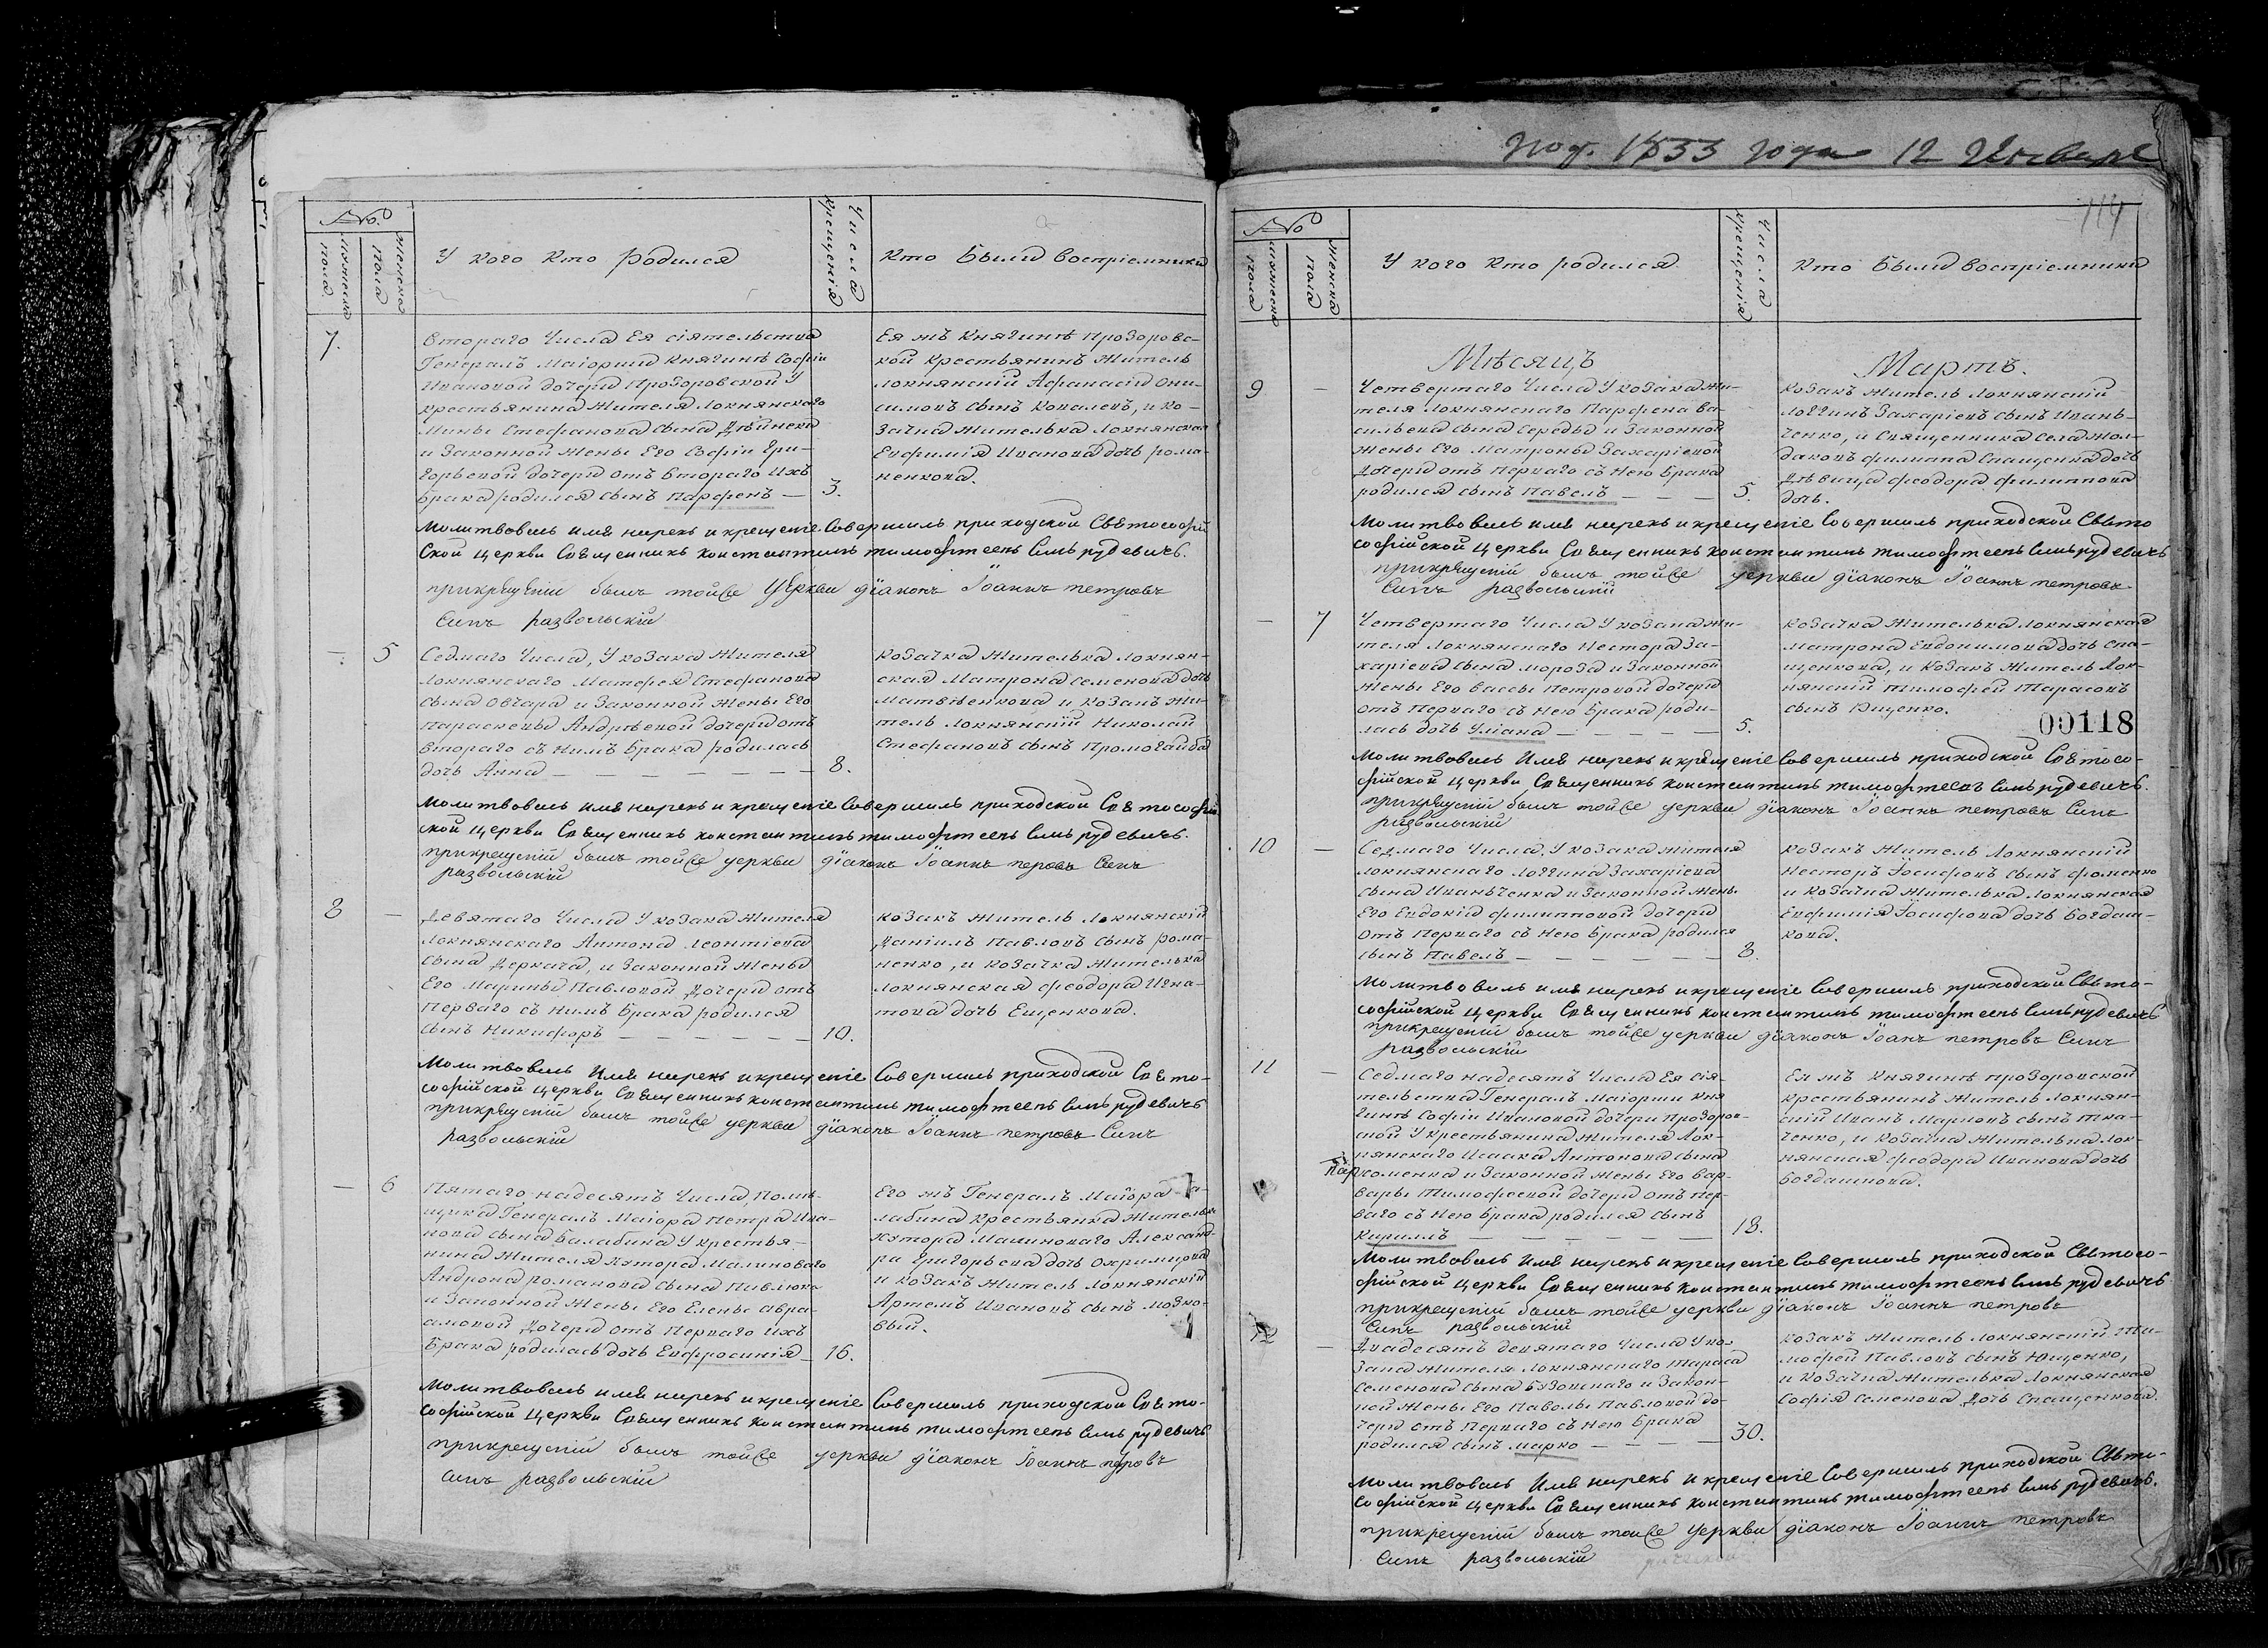 №
мужеска пола
женска пола
У кого кто Родился
Числа крещенія
Кто Были воспріемники
7.
Втораго Числа Ея сіятельства
Генералъ Маіорши Княгинѣ Софіи
Ивановой дочери Прозоровской У
крестьянина Жителя Локнянскаго
Мины Стефанова сына Дѣйнека
и Законной Жены Его Софіи Гри-
горьевой дочери отъ Втораго Ихъ
брака родился сынъ Парфенъ —
3.
Ея жъ Княгинѣ Прозоровс-
кой Крестьянинъ Житель
Локнянскій Афанасій Они-
симовъ сынъ Ковалевъ, и ко-
зачка Жителька Локнянская
Евфимія Иванова дочь рома-
ненкова.
Молитвовалъ имя нарекъ и крещеніе Совершилъ приходской Свѣтософій
Ской церкви Священникъ константинъ тимофтеевъ Синъ рудевичъ.
прикрещеніи былъ тойже Церкви діаконъ Іоаннъ петровъ
Синъ развольскій
5
Седмаго Числа, У козака Жителя
Локнянскаго Матфея Стефанова
сына Овчара и Законной Жены Его
Параскевы Андрѣевой дочери отъ
Втораго съ нимъ брака родилась
дочь Анна — — — — — — —
8.
Козачка Жителька Локнян-
ская Матрона Семенова дочь
Матвѣенкова и Козакъ Жи-
тель Локнянскій Николай
Стефановъ сынъ Промогайба
Молитвовалъ имя нарекъ и крещеніе Совершилъ приходской Свѣтософій
ской церкви Священникъ константинъ тимофтеевъ Синъ рудевичъ.
прикрещеніи былъ тойже церкви діаконъ Іоаннъ перовъ Синъ
развольскій
8 —
Девятаго Числа У козака Жителя
Локнянскаго Антона Леонтіева
сына Деркача, и Законной Жены
Его Марины Павловой Дочери отъ
Перваго съ нимъ брака родился
сынъ Никифоръ — — — — — —
10.
Козакъ Житель Локнянскій
Даніилъ Павловъ сынъ рома-
ненко, и козачка Жителька
Локнянская Феодора Игна-
това дочь Ещенкова.
Молитвовалъ Имя нарекъ и крещеніе Совершилъ приходской Свѣто-
софійской церкви Священникъ константинъ тимофтеевъ Синъ рудевичъ
прикрещеніи былъ тойже церкви діаконъ Іоаннъ петровъ Синъ
развольскій
— 6
Пятаго надесять Числа, Поми-
щика Генералъ Маіора Петра Ива-
нова сына Балабина У крестья-
нина Жителя Хутора Малиноваго
Андрона романова сына Павлюка
и Законной Жены Его Елены Авра-
амовой Дочери отъ Перваго ихъ
Брака родилась дочь Евфросинія —
16.
Его жъ Генералъ Маіора
лабина Крестьянка Жителька
Хутора Малиноваго Александ-
ра Григорьева дочь Охримцова
и Козакъ Житель Локнянскій
Артемъ Ивановъ сынъ Мозко-
вый.
Молитвовалъ имя нарекъ и крещеніе Совершилъ приходской Свѣто-
софійской церкви Священникъ константинъ тимофтеевъ Синъ рудевичъ
прикрещеніи былъ тойже церкви діаконъ Іоаннъ петровъ
Синъ развольскій
1833 года 12 Января
114
№
мужеска пола
женска пола
У кого кто родился
Числа крещенія
Кто Были воспріемники
Мѣсяцъ Мартъ.
9 —
Четвертаго Числа У козака Жи-
теля Локнянскаго Парфена Ва-
сильева сына Середы и Законной
Жены Его Матроны Захаріевой
Дочери отъ Перваго съ Нею Брака
родился сынъ Павелъ — — —
5.
Козакъ Житель Локнянскій
Логгинъ Захаріевъ сынъ Ивань-
ченко, и Священника села Жол-
даковъ Филипа Спащенка дочь
Дѣвица Феодора Филиппова
дочь.
Молитвовалъ имя нарекъ и крещеніе Совершилъ приходской Свѣто
софійской церкви Священникъ константинъ тимофтеевъ Синъ рудевичъ
прикрещеній былъ тойже церкви діаконъ Іоаннъ петровъ
Синъ развольскій
— 7
Четвертаго Числа У козака Жи-
теля Локнянскаго Нестора За-
харіева сына Мороза и Законной
Жены Его Вассы Петровой дочери
отъ Перваго съ Нею Брака роди-
лась дочь Уліана — — — — —
5.
Козачка Жителька Локнянская
Матрона Евдокимова дочь Спа-
щенкова, и Козакъ Житель Лок-
нянскій Тимофей Тарасовъ
сынъ Ющенко.
00118
Молитвовалъ Имя нарекъ и крещеніе Совершилъ приходской Свѣтосо-
фійской церкви Священникъ константинъ тимофтеевъ Синъ рудевичъ.
прикрещеній былъ тойже церкви діаконъ Іоаннъ петровъ Синъ
развольскій
10 —
Седмаго Числа, У козака жителя
Локнянскаго Логгина Захаріева
сына Иваньченка и Законной Жены
Его Евдокіи Филипповой дочери
отъ Перваго съ Нею Брака родился
сынъ Павелъ — — — — — —
8.
Козакъ Житель Локнянскій
Несторъ Іосифовъ сынъ Фоменко
и Козачка Жителька Локнянская
Евфимія Іосифова дочь Богдаш-
кова.
Молитвовалъ имя нарекъ и крещеніе Совершилъ приходской Свѣто-
софійской церкви Священникъ константинъ тимофтеевъ Синъ рудевичъ
прикрещеній былъ тойже церкви діаконъ Іоанъ петровъ Синъ
развольскій
11 —
Седмаго надесять Числа Ея сія-
тельства Генералъ Маіорши кня
гинѣ Софіи Ивановой дочери Прозоров-
ской У крестьянина Жителя Лок-
нянскаго Исаака Антонова сына
Пархоменка и Законной Жены Его Вар-
вары Тимофеевой дочери отъ Пер-
ваго съ Нею Брака родился сынъ
Кириллъ — — — — — —
18.
Ея жъ Княгинѣ Прозоровской
крестьянинъ Житель Локнян-
скій Иванъ Марковъ сынъ Тка-
ченко, и Козачка Жителька Лок-
нянская Феодора Иванова дочь
Богдашкова.
Молитвовалъ Имя нарекъ и крещеніе Совершилъ приходской Свѣтосо-
фійской церкви Священникъ константинъ тимофтеевъ Синъ рудевичъ
прикрещеній былъ тойже церкви діаконъ Іоаннъ петровъ
Синъ развольскій
12 —
Двадесять девятаго Числа У ко-
зака Жителя Локнянскаго Тараса
Семенова сына Бузовскаго и Закон-
ной Жены Его Паволы Павловой до-
чери отъ Перваго съ Нею Брака
родился сынъ Марко — — — —
30.
Козакъ Житель Локнянскій Ти-
мофей Павловъ сынъ Ющенко,
и Козачка Жителька Локнянская
Софія Семенова Дочь Спащенкова.
Молитвовалъ Имя нарекъ и крещеніе Совершилъ приходской Свѣто-
софійской церкви Священникъ константинъ тимофтеевъ Синъ рудевичъ.
прикрещеній былъ тойже церкви діаконъ Іоаннъ петровъ
Синъ развольскій